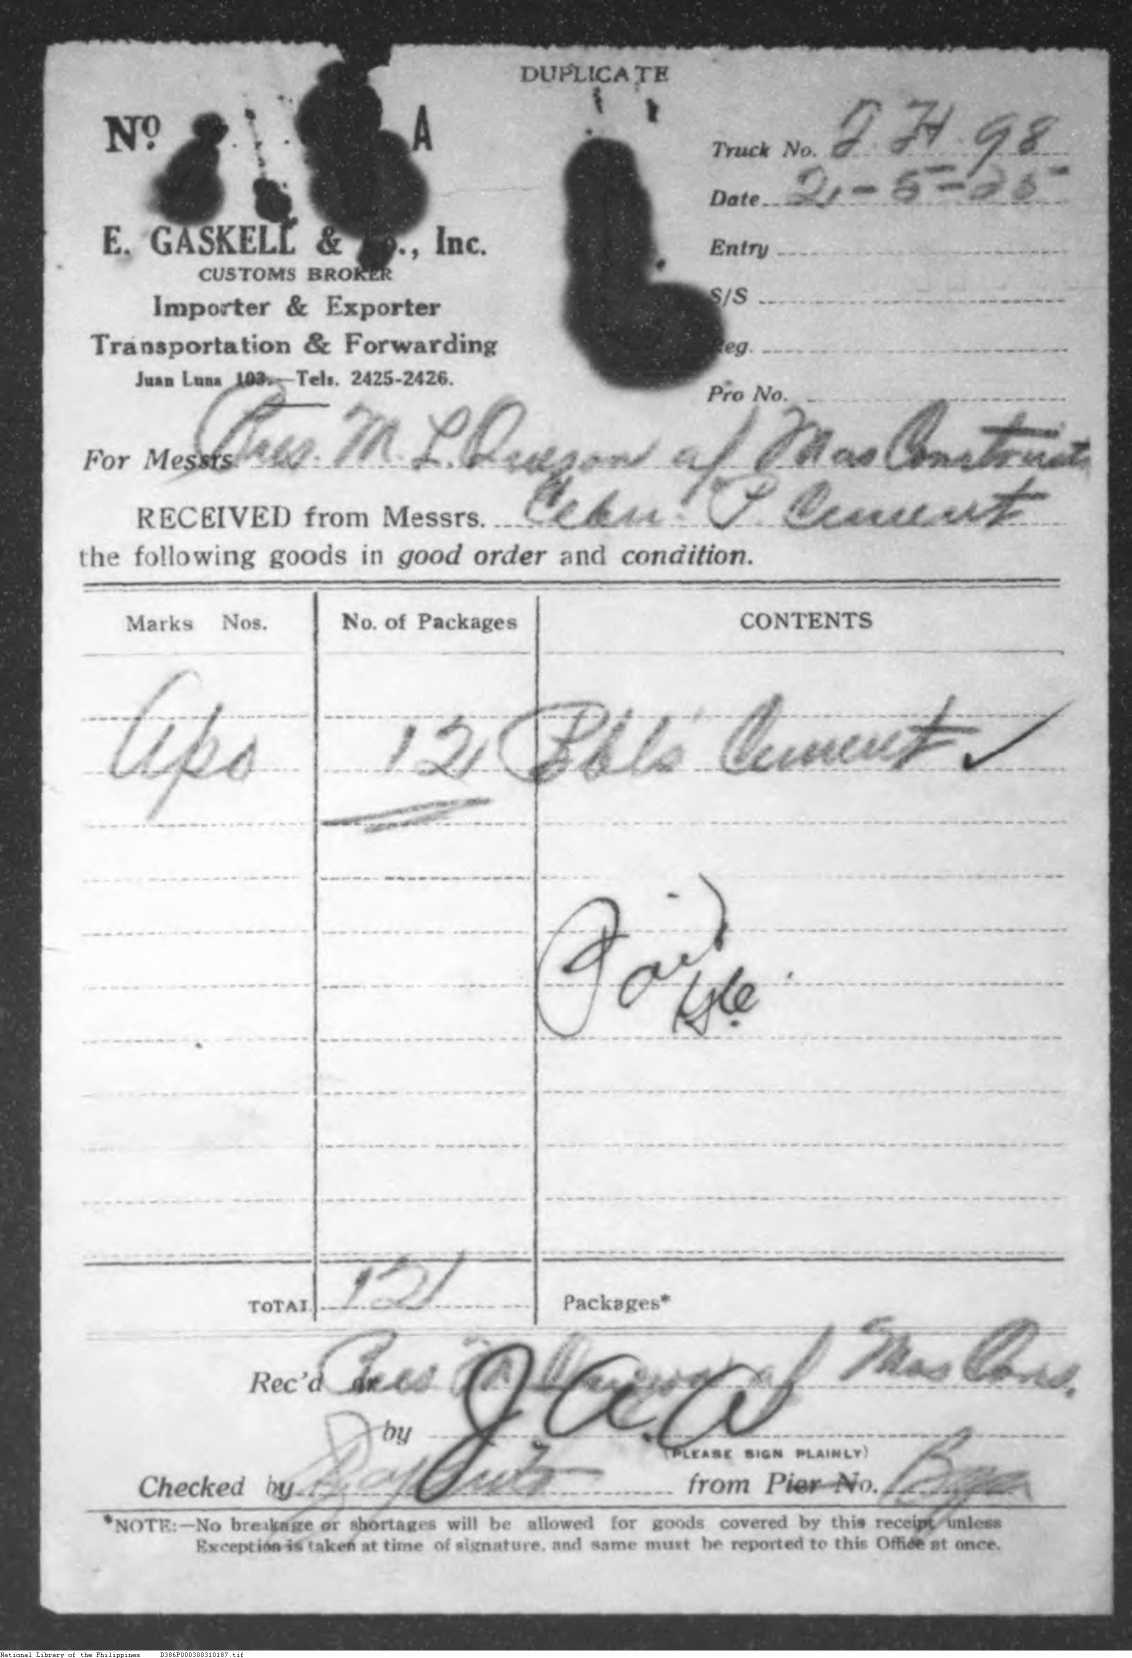 DUPLICATE
Nº A
Truck No. T.H. 98
Date 2-5-25
E. GASKELL & Co., Inc.
Entry
CUSTOMS BROKER
Importer & Exporter
S/S
Transportation & Forwarding
Reg.
Juan Luna 103.—Tels. 2425-2426.
Pro No.
For Messrs Pres. M. L. Quezon a/ Mas
RECEIVED from Messrs. Cebu P. Cement
the following goods in good order and condition.
Marks Nos. No. of Packages CONTENTS
Apo 12 Bbls Cement ✓
Paid
TOTAL 12 Packages*
Rec'd Pres M Quezon a/ Mas Cons.
by J.A.A
(PLEASE SIGN PLAINLY)
Checked by from Pier No.
*NOTE:—No breakage or shortages will be allowed for goods covered by this receipt unless
Exception is taken at time of signature, and same must be reported to this Office at once.
National Library of the Philippines D386P000300310187.tif